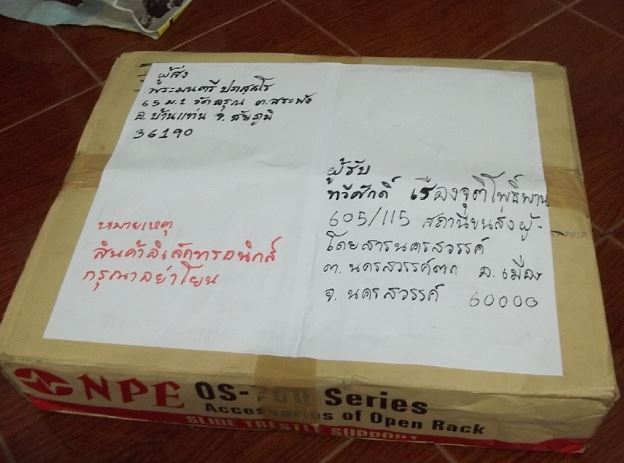 ผู้ส่ง
พระมนตรี ปภสฺสโร
65 ม.1 วัดอรุณ ต.สระพัง
อ.บ้านแท่น จ.ชัยภูมิ
36190
ผู้รับ
ทวีศักดิ์ เรืองจุติโพธิ์พาน
605/115 สถานีขนส่งผู้-
โดยสารนครสวรรค์
ต.นครสวรรค์ตก อ.เมือง
จ.นครสวรรค์ 60000
หมายเหตุ
สินค้าอิเล็คทรอนิกส์
กรุณาอย่าโยน
NPE OS- Series
Accessories of Open Rack
SLIDE TRESTLE SUPPORT